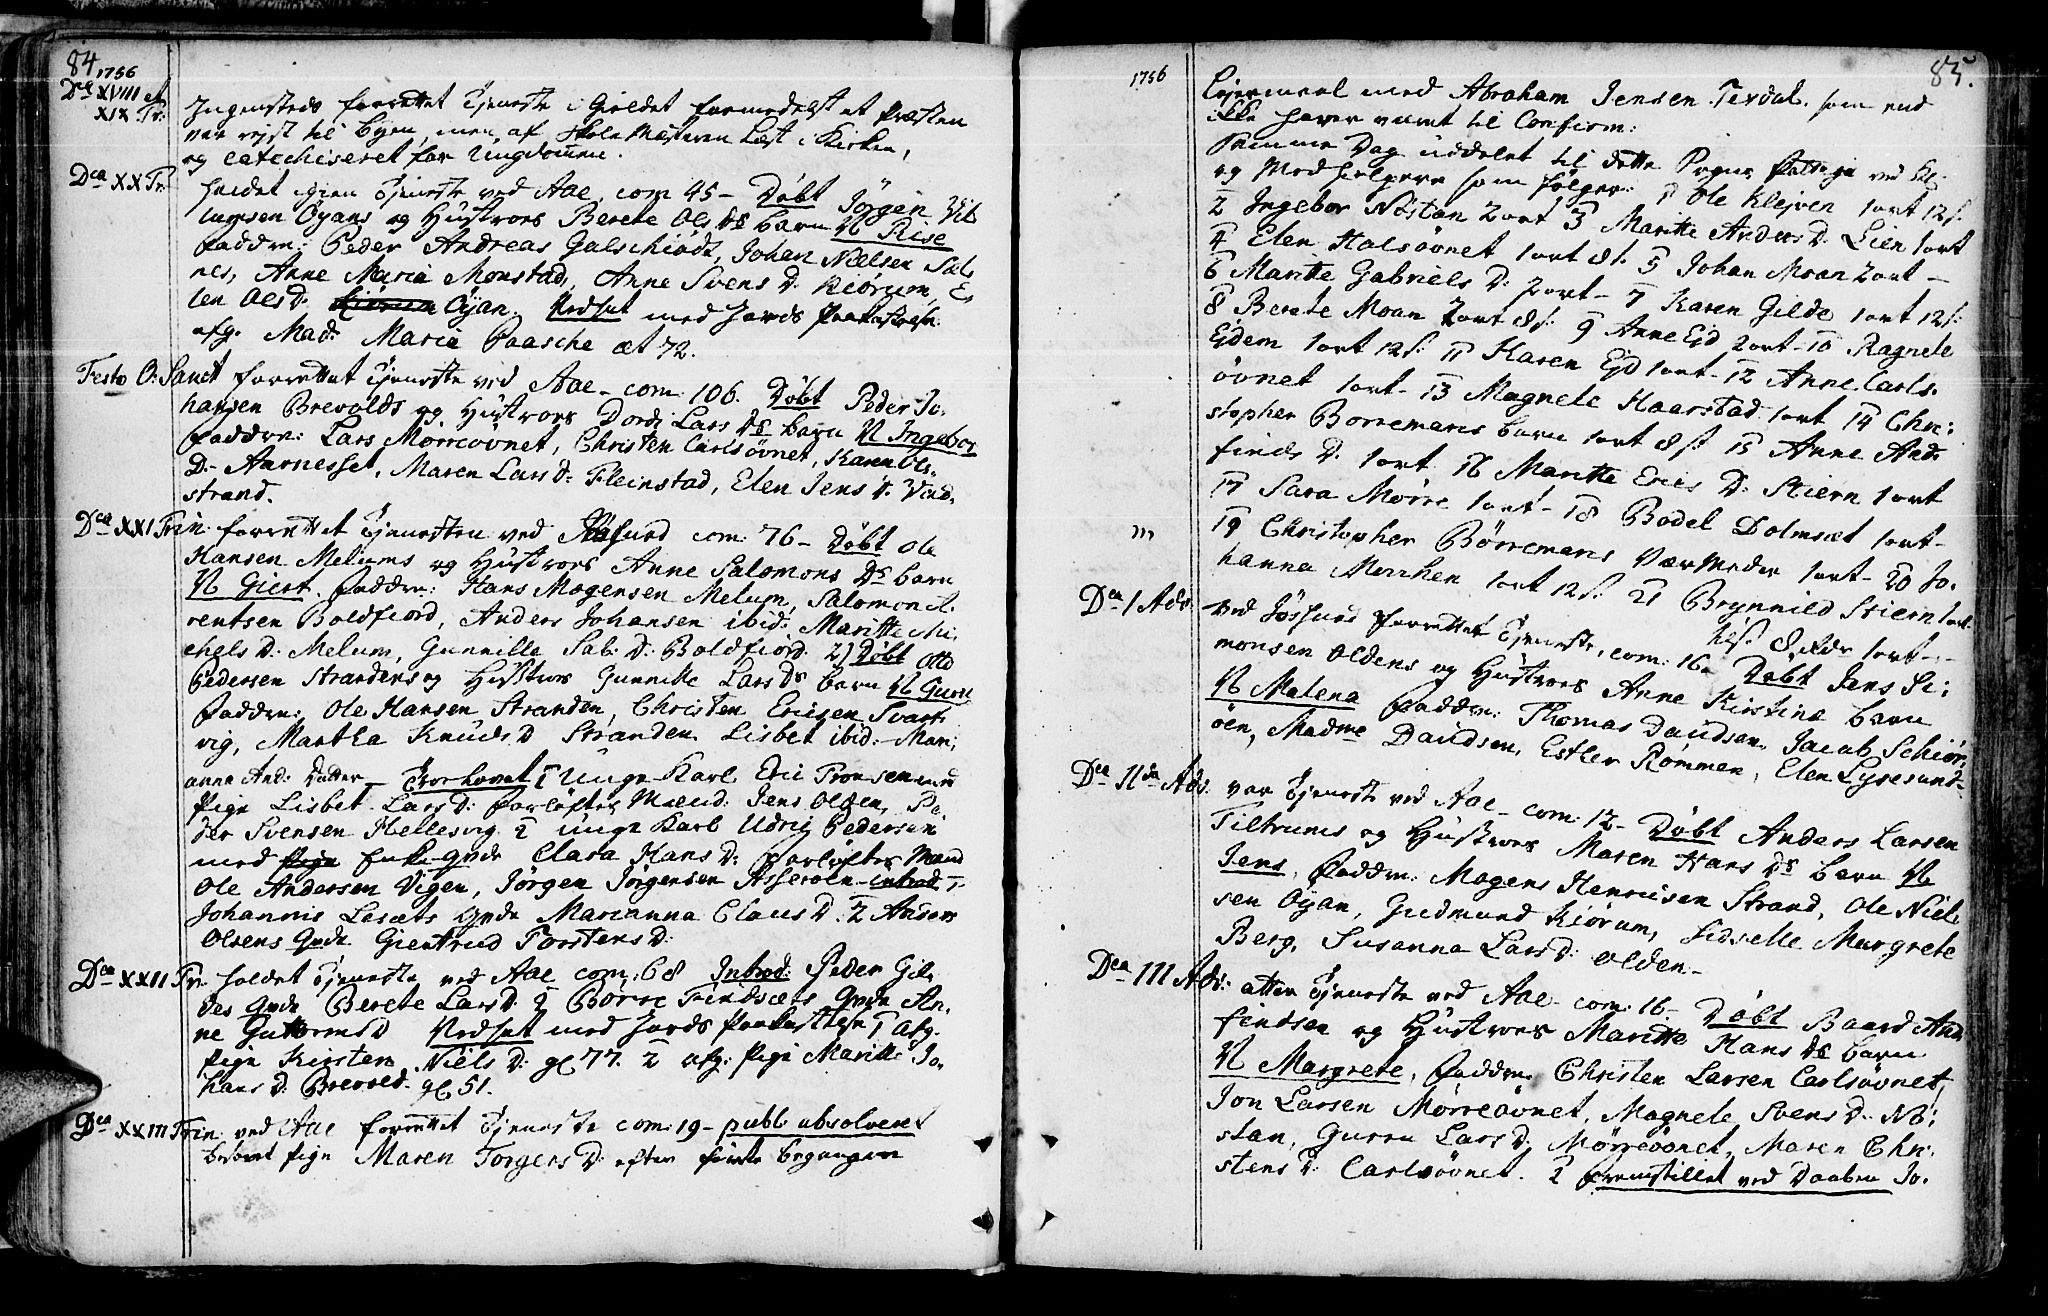 84 1756
Dca XVIII et
XIX Tr: Ingensteds forrettet Tjeneste i Gieldet formedelst at Præsten
var rejst til Byen, men af Skole Mesteren Læst i Kirken,
og catechiseret for Ungdommen.
Dca XX Tr. holdet igien Tjeneste ved Aae, com 45 – Døbt Jørgen
Öyans og Hustroes Berete Ols Ds barn N Rise
Faddere: Peder Andreas Galschiødt, Johan Nielsen Sal
nes, Anne Maria Monstad, Anne Svens D. Kiørum, E,
len Ols D: Öyan. Vedset med Jords Paakastelse
afg. Mad: Maria Paasche æt 72.
Festo O: Sanct forrettet Tjeneste ved Aae – com: 106. Døbt Peder Jo,
hansen Brevolds og Hustroes Dordi Lars Ds barn N Ingebor
Faddere: Lars Mørreövnet, Christen Carlsövnet, Karen Ols
D – Aarnesset, Maren Lars D: Fleinstad, Elen Jens D: Vad,
strand.
Dca XXI Trin. forrettet Tjenesten ved Jøssund com: 76 – Døbt Ole
Hansen Melums og Hustroes Anne Salomons Ds barn
N Giert. Faddere: Hans Mogensen Melum, Salomon L.
rentsen Boldfiord, Anders Johansen ibid: Maritte Mi,
chels D: Melum, Gunnille Sab: D: Boldfiord. 2) Døbt Otto
Pedersen Strandens og Hustroes Gunnille Lars Ds barn N Guru
Faddere: Ole Hansen Stranden, Christen Ericsen Svart,
vig, Martha Knuds D Stranden Lisbet ibid: – Mari,
anna And: Datter – Trolovet 1 Unge Karl Eric Tronsen med
Pige Lisbet Lars D: Forløfter Mænd: Jens Olden, Pe,
der Svensen Hellesvig. 2 unge Karl Udrig Pedersen
med Pige Enke qvde Clara Hans D: Forløfter Mænd
Ole Andersen Vigen, Jörgen Jörgensen Asseröen – introd 1
Johannis Lesæts qvde Marianna Claus D: 2 Anders
Olsens qvde Giertrud Torstens D:
Dca XXII Tr. holdet Tjeneste ved Aae com: 68 Introd: Peder Gil,
des qvde Berete Lars D: 2 Börre Findsæts qvde An,
ne Guttorms D Vedset med Jords Paakastelse 1 afg.
Pige Kirsten Niels D: gl 77. 2 afg: Pige Maritte Jo,
hans D: Brevold. gl 51.
Dca XXIII Trin. ved Aae forrettet Tjeneste com: 19 – publ: absolveret
besovet Pige Maren Torgers D: efter første begangen
1756 85.
Lejermaal med Abraham Jensen Terdal. som end
ikke haver været til Confirm:
Samme Dag uddelet til dette Præste
og Medhielpere som følger: 1 Ole Klejven 1 ort 12 s.
2 Ingebor Nöstan 2 ort 3 Maritte Anders D. Lien 1 ort
4 Elen Halsövnet 1 ort 8 s. 5 Johan Moan 2 ort –
6 Maritte Gabriels D: 2 ort – 7 Karen Gilde 1 ort 12 s:
8 Berete Moan 2 ort 8 s: 9 Anne Eid 2 ort – 10 Ragnele
Eidem 1 ort 12 s: 11 Karen Eid 1 ort – 12 Anne Carls,
övnet 1 ort – 13 Magnele Haarstad 1 ort 14 Chri:
stopher Börremans barn 1 ort 8 s 15 Anne And:
finds D. 1 ort 16 Maritte Erics D: Stiern 1 ort
17 Sara Mörre 1 ort – 18 Bodel Dolmsæt 1 ort –
19 Christopher Börremans Værmoder 1 ort – 20 Jo,
hanna Menchen 1 ort 12 s: 21 Brynnild Stiern 1 ort
1 ort –
Dca I Adv: ved Jøssund forrettet Tjeneste, com: 16 – Døbt Jens Si:
monsen Oldens og Hustroes Anne Kirstine barn
N Malena Faddere: Thomas Daudsen, Jacob Schiör,
öen, Madme Daudsen, Ester Römmen, Elen Lysesund –
Dca IIda Adv: var Tjeneste ved Aae – com: 12 – Døbt Anders Larsen
Tiltrums og Hustroes Maren Hans Ds barn N
Jens, Faddere: Mogens Henricsen Strand, Ole Niel,
sen Öyan, Gudmund Kiörum, Sidselle Margrete
Berg, Susanna Lars D: Olden –
Dca III Adv: atter Tjeneste ved Aae – com: 16 – Døbt Baard And
findsen og Hustroes Maritte Hans Ds barn
N Margrete, Faddere Christen Larsen Carlsövnet,
Jon Larsen Mörreövnet, Magnele Svens D: Nö,
stan, Guru Lars D: Mörreövnet, Maren Chri,
stens D: Carlsövnet. 2 fremstillet ved Daaben Jo,